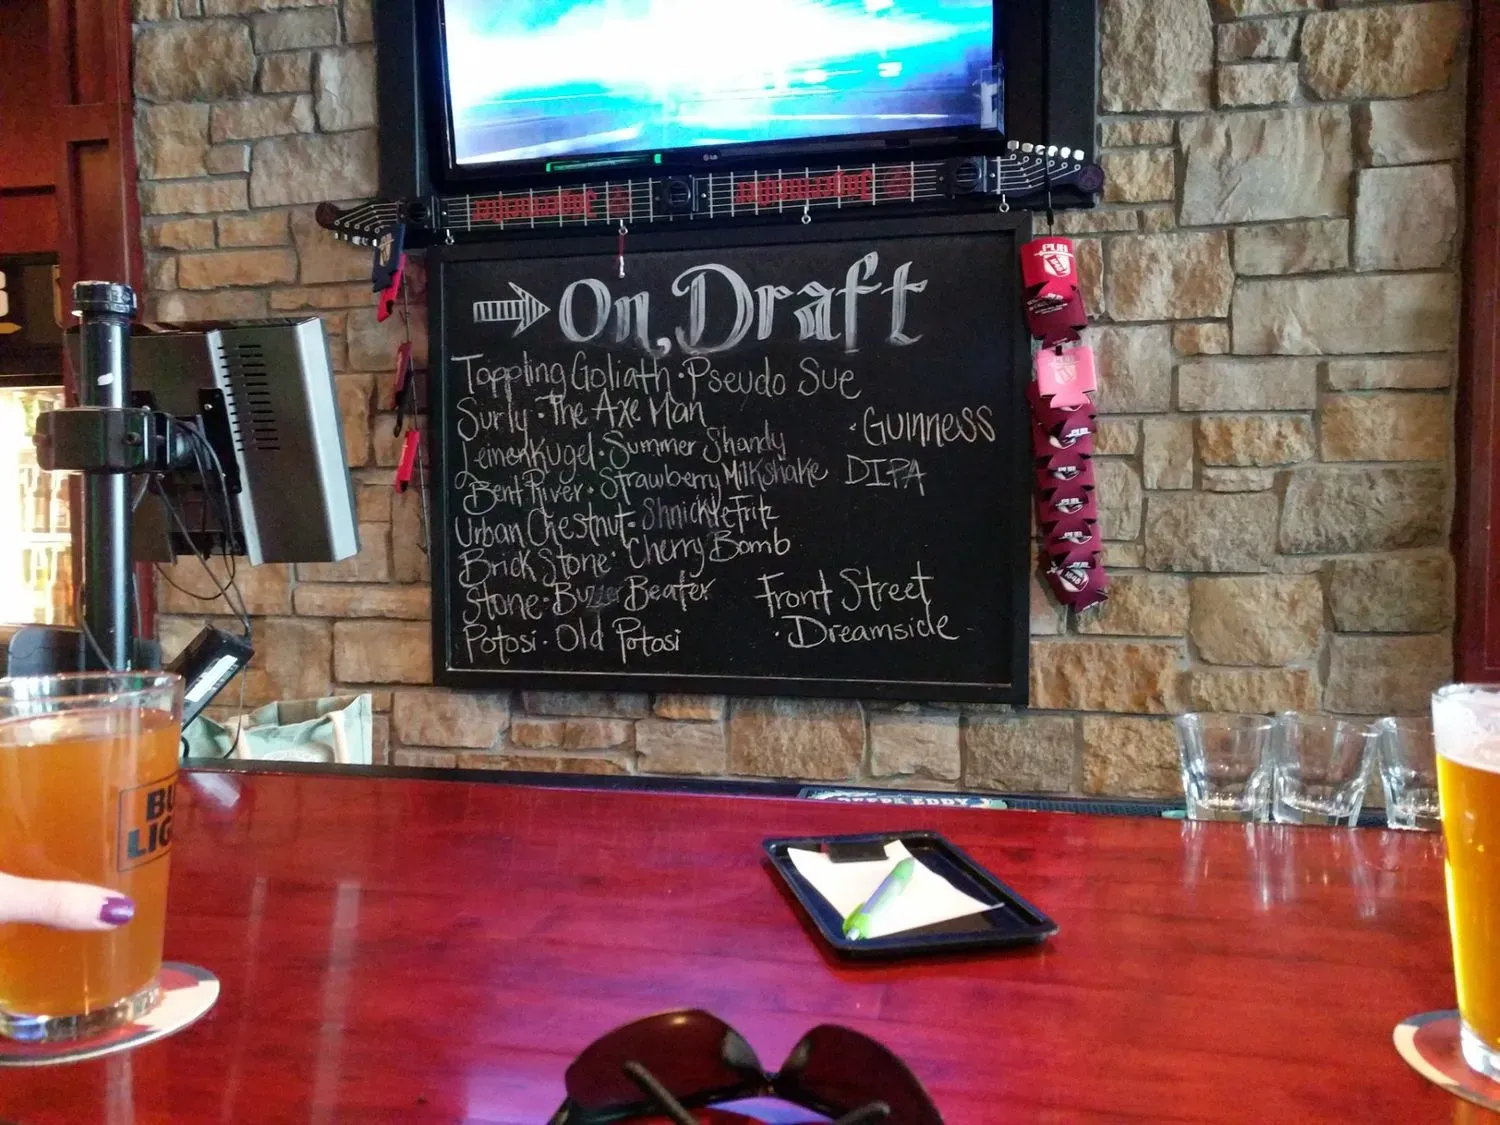 LG
On, Draft
Toppling Goliath · Pseudo Sue
Surly · The Axe Man
Leinenkugel · Summer Shandy
Bent River · Strawberry Milkshake
Urban Chestnut · Shnickle Fritz
Brick Stone · Cherry Bomb
Stone · Buzzer Beater
Potosi · Old Potosi
· GUINNESS
DIPA
Front Street
· Dreamside
PUB
1848
BU
LIG
DEEP EDDY